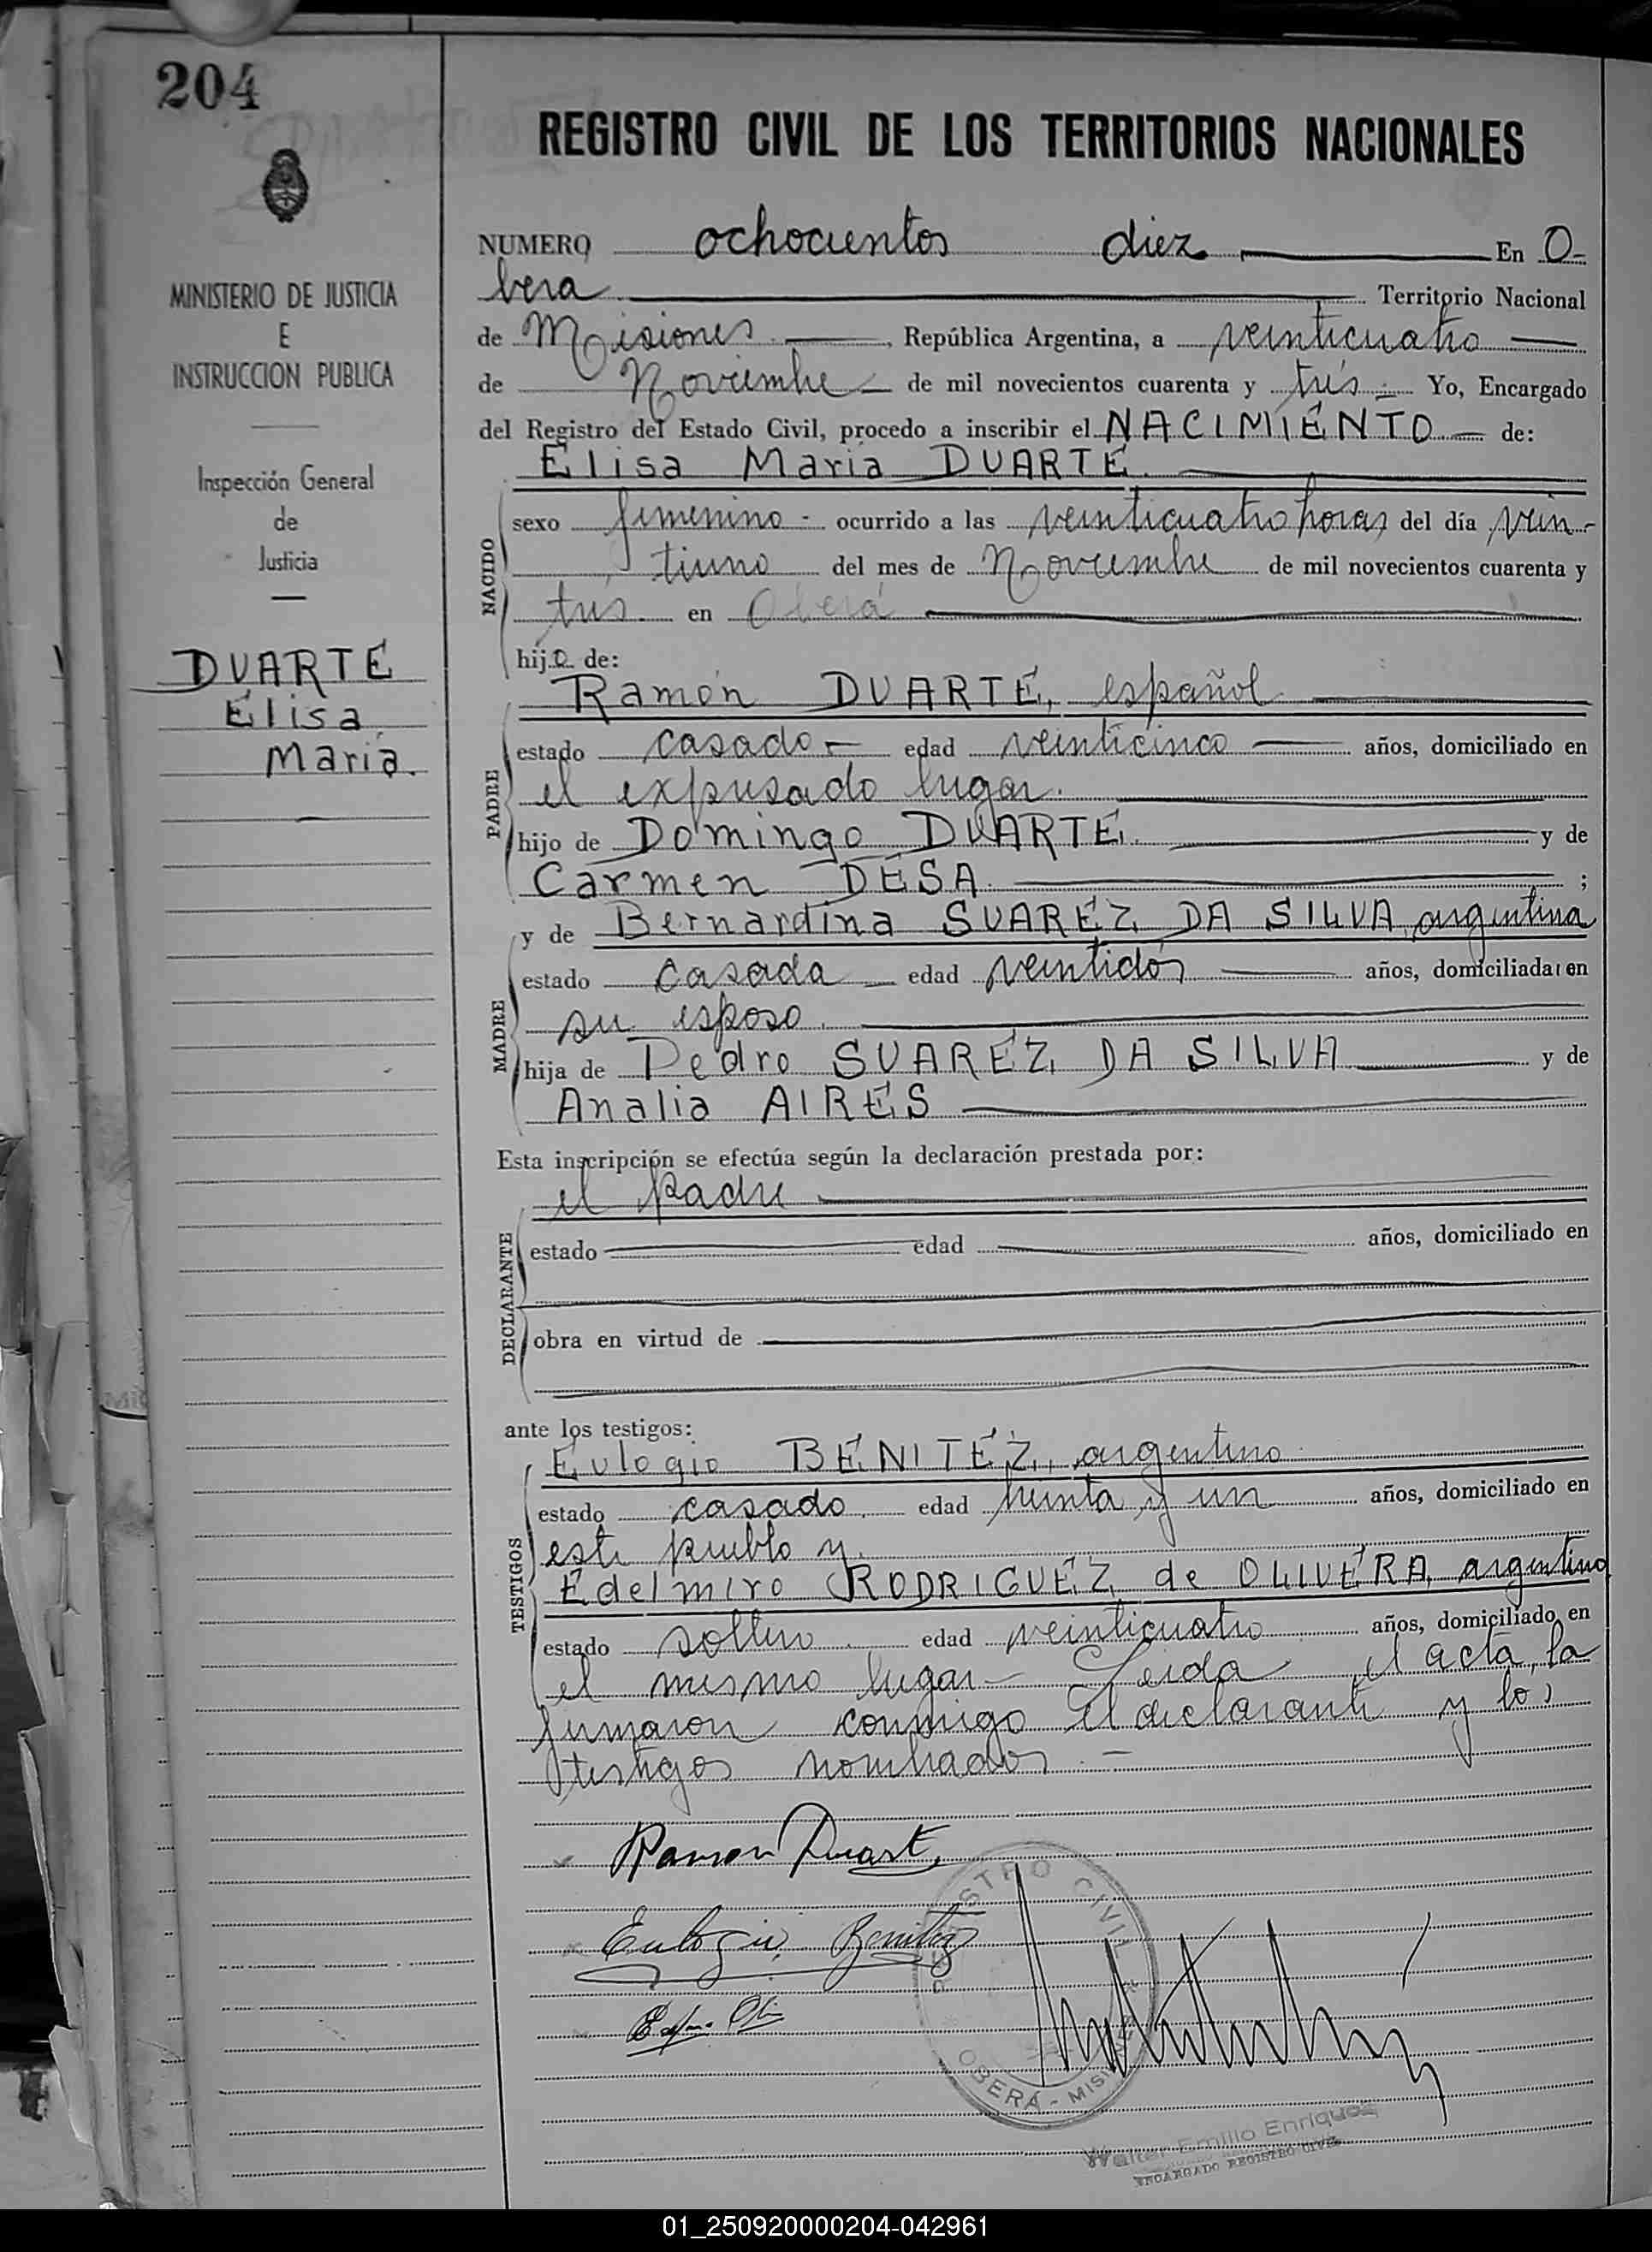 204
REGISTRO CIVIL DE LOS TERRITORIOS NACIONALES
MINISTERIO DE JUSTICIA
E
INSTRUCCION PUBLICA
Inspección General
de
Justicia
DUARTE
Elisa
Maria.
NUMERO ochocientos diez En O-
bera Territorio Nacional
de Misiones, República Argentina, a veinticuatro
de Noviembre de mil novecientos cuarenta y tres Yo, Encargado
del Registro del Estado Civil, procedo a inscribir el NACIMIENTO de:
Elisa Maria DUARTE.
NACIDO
sexo femenino - ocurrido a las veinticuatro horas del día vein-
tiuno del mes de Noviembre de mil novecientos cuarenta y
tres en Oberá
hijo de:
PADRE
Ramón DUARTE, español
estado casado - edad veinticinco años, domiciliado en
el expresado lugar.
hijo de Domingo DUARTE. y de
Carmen DESA. ;
MADRE
y de Bernardina SUAREZ DA SILVA, argentina
estado casada edad veintidós años, domiciliada en
su esposo.
hija de Pedro SUAREZ DA SILVA y de
Analia AIRES
Esta inscripción se efectúa según la declaración prestada por:
el padre
DECLARANTE
estado edad años, domiciliado en
obra en virtud de
ante los testigos:
TESTIGOS
Eulogio BENITEZ, argentino
estado casado. edad treinta y un años, domiciliado en
este pueblo y
Edelmiro RODRIGUEZ de OLIVERA, argentino
estado soltero edad veinticuatro años, domiciliado en
el mismo lugar - Leida el acta, la
firmaron conmigo el declarante y los
testigos nombrados. -
Ramon Duarte
Eulogio Benitez
REGISTRO CIVIL
OBERÁ - MISIONES
Walter Emilio Enriquez
ENCARGADO REGISTRO CIVIL
01_250920000204-042961